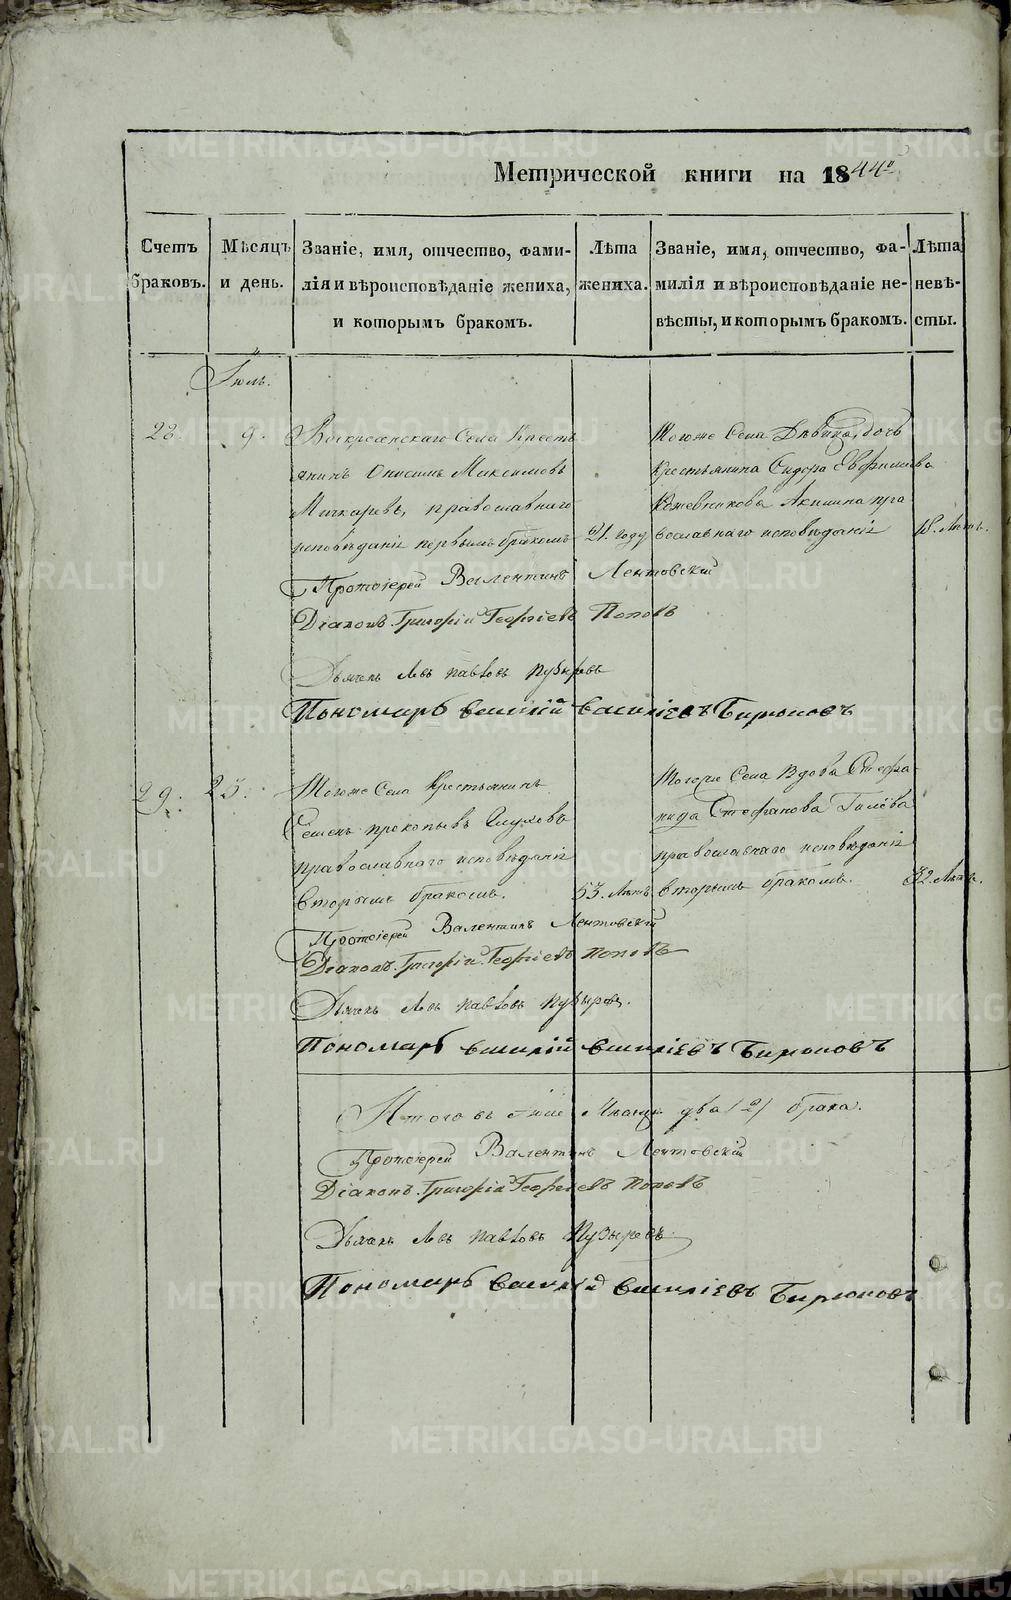 Метрической книги на 1844й
Счетъ браковъ.
Мѣсяцъ и день.
Званіе, имя, отчество, фами-
лія и вѣроисповѣданіе жениха,
и которымъ бракомъ.
Лѣта жениха.
Званіе, имя, отчество, фа-
милія и вѣроисповѣданіе не-
вѣсты, и которымъ бракомъ.
Лѣта невѣ-
сты.
Іюль.
28. 9.
Воскресенскаго Села Кресть
янинъ Онисимъ Максимовъ
православнаго
исповѣданія первымъ бракомъ
21. году
Тогоже Села Дѣвица, дочь
крестьянина Сидора
Кожевникова Акилина пра
вославнаго исповѣданія
18. Лѣтъ.
Протоіерей Валентинъ Лентовскій
Діаконъ Григорій Георгіевъ Поповъ
Дьячекъ Левъ Павловъ Пузыревъ
Пономарь Василій Василіевъ Бирюковъ
29. 25.
Тогоже Села Крестьянинъ
Семенъ Прокопьевъ
православнаго исповѣданія
вторымъ бракомъ.
53. Лѣтъ
Тогоже Села Вдова Стефа
нида Стефанова Гилева
православнаго исповѣданія
вторымъ бракомъ.
32. Лѣтъ.
Протоіерей Валентинъ Лентовскій
Діаконъ Григорій Георгіевъ Поповъ
Дьячекъ Левъ Павловъ Пузыревъ.
Пономарь Василій Василіевъ Бирюковъ
Итого въ Іюле Мѣсяце два /2/ брака.
Протоіерей Валентинъ Лентовскій
Діаконъ Григорій Георгіевъ Поповъ
Дьячекъ Левъ Павловъ Пузыревъ
Пономарь Василій Василіевъ Бирюковъ
METRIKI.GASO-URAL.RU